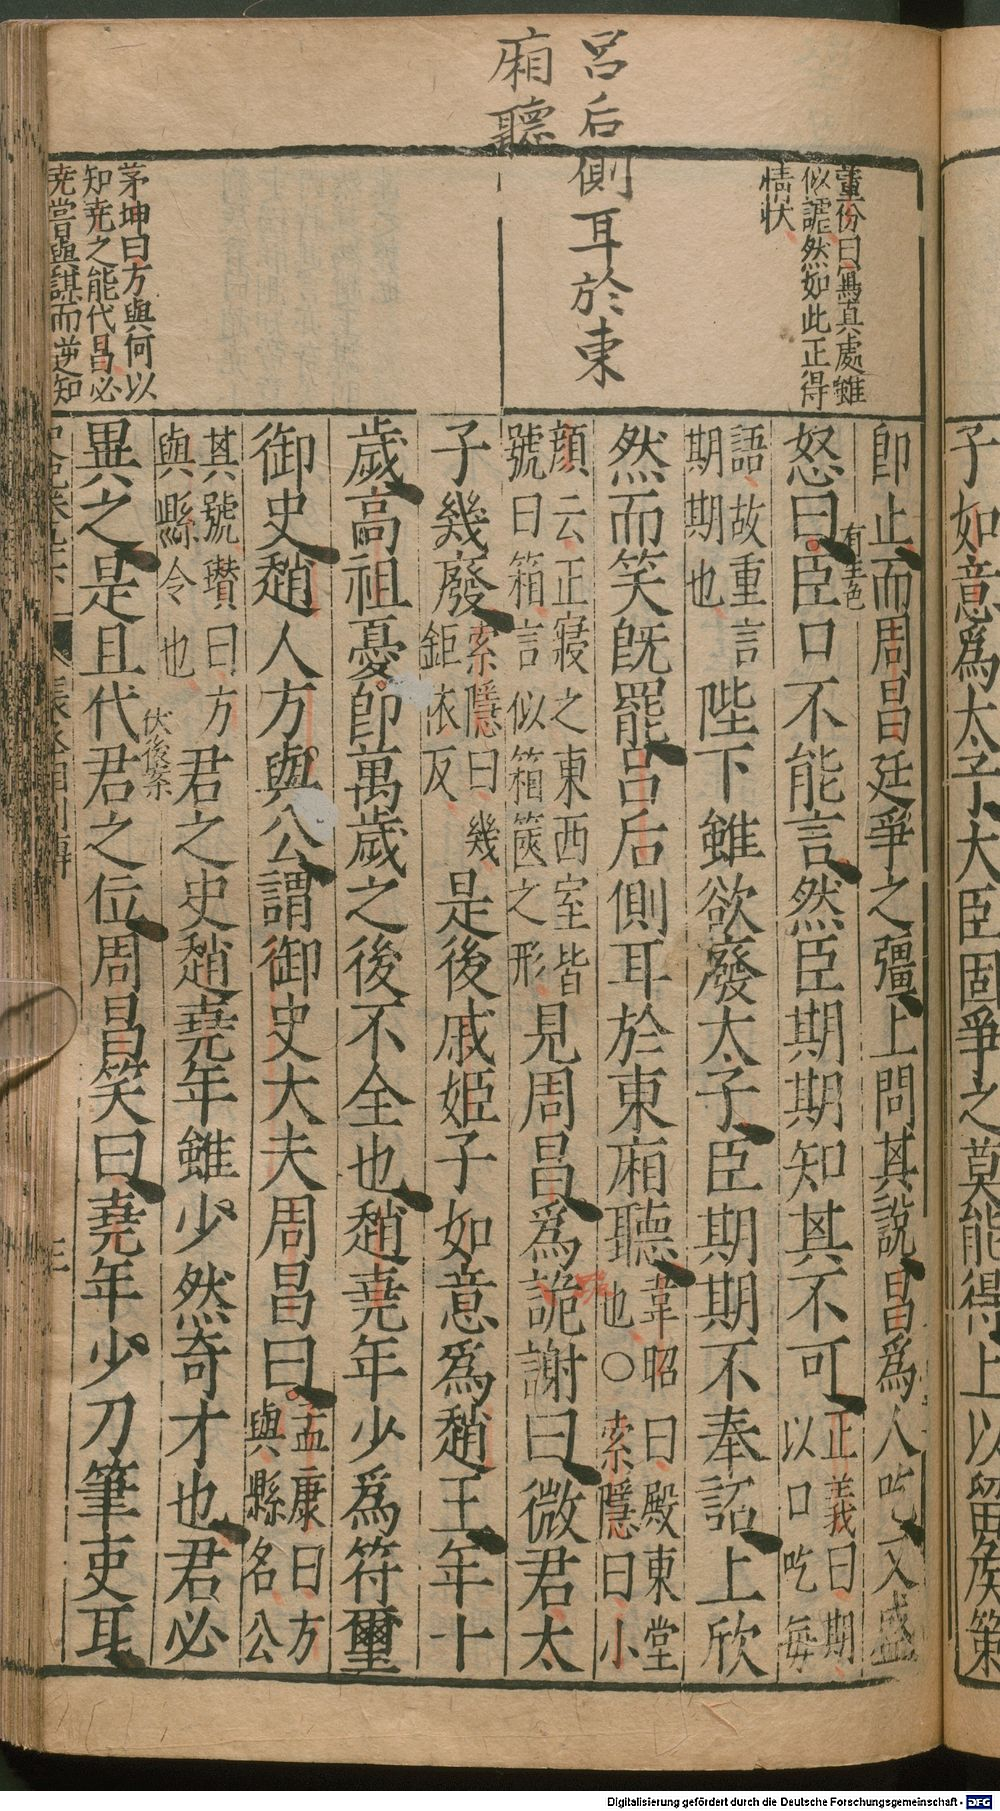 子如意爲太子大臣固爭之莫能得上以留矦策
呂后側耳於東
廂聽
董份曰寫真處雖
似謔然如此正得
情状
茅坤曰方與何以
知尭之能代昌必
尭嘗與謀而逆知
卽止而周昌廷爭之彊上問其說昌爲人吃又盛
有生色
怒曰臣口不能言然臣期期知其不可
正義曰期
以口吃每
語故重言
期期也
陛下雖欲廢太子臣期期不奉詔上欣
然而笑旣罷呂后側耳於東廂聽
韋昭曰殿東堂
也○索隱曰小
顔云正寢之東西室皆
號曰箱言似箱篋之形
見周昌爲跪謝曰微君太
子幾廢
索隱曰幾
鉅依反
是後戚姬子如意爲趙王年十
歲高祖憂卽萬歲之後不全也趙堯年少爲符璽
御史趙人方與公謂御史大夫周昌曰
孟康曰方
與縣名公
其號瓚曰方
與縣令也
君之史趙堯年雖少然奇才也君必
伏後案
異之是且代君之位周昌笑曰堯年少刀筆吏耳
三
Digitalisierung gefördert durch die Deutsche Forschungsgemeinschaft - DFG